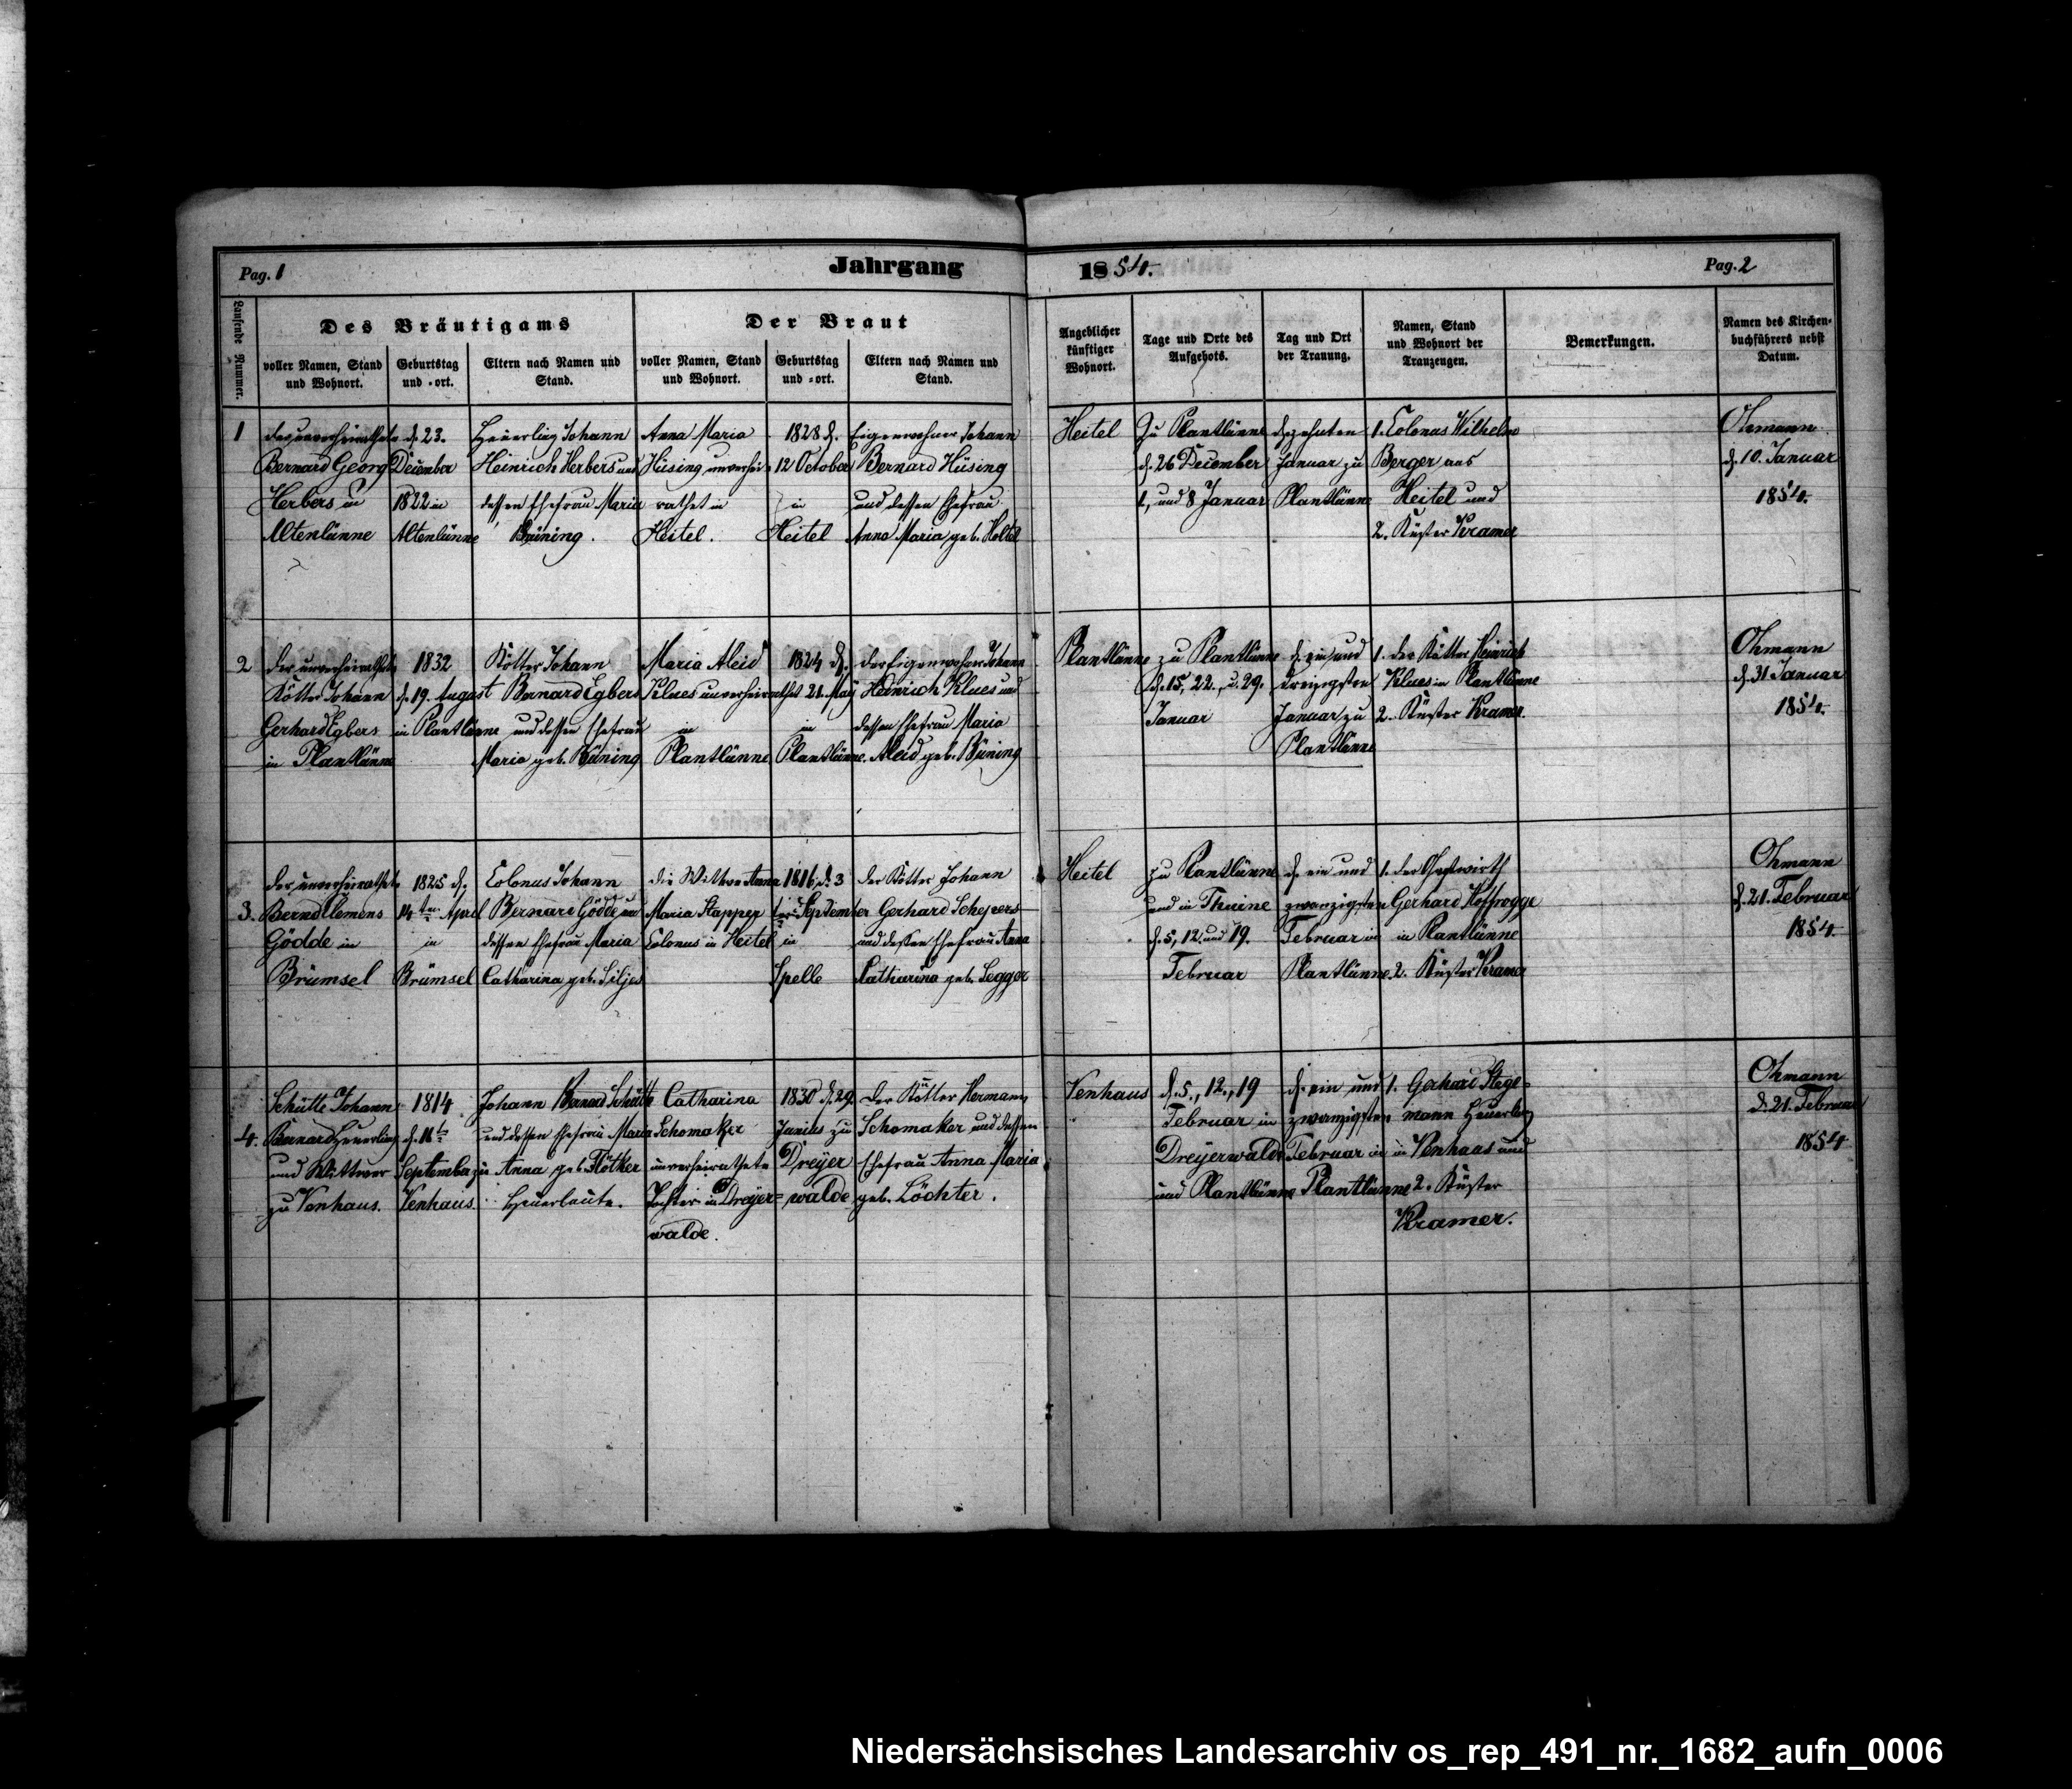 Pag. 1
Jahrgang
1854.
Pag. 2
Laufende Nummer.
Des Bräutigams
voller Namen, Stand
und Wohnort.
Geburtstag
und -ort.
Eltern nach Namen und
Stand.
Der Braut
voller Namen, Stand
und Wohnort.
Geburtstag
und -ort.
Eltern nach Namen und
Stand.
Angeblicher
künftiger
Wohnort.
Tage und Orte des
Aufgebots.
Tag und Ort
der Trauung.
Namen, Stand
und Wohnort der
Trauzeugen.
Bemerkungen.
Namen des Kirchen-
buchführers nebst
Datum.
1
der unverheirathete
Bernard Georg
Herbers in
Altenlünne
d. 23.
December
1822 in
Altenlünne
Heuerling Johann
Heinrich Herbers und
dessen Ehefrau Maria
Büning.
Anna Maria
Hüsing unverhei
rathet in
Heitel.
1828 d.
12 October
in
Heitel
Eigenwohner Johann
Bernard Hüsing
und dessen Ehefrau
Anna Maria geb. Holtel
Heitel
Zu Plantlünne
d. 26 December
1, und 8 Januar
d. zehnten
Januar zu
Plantlünne
1. Colonus Wilhelm
Berger aus
Heitel und
2. Küster Kramer
Ohmann
d. 10. Januar
1854.
2
der unverheirathete
Kötter Johann
Gerhard Egbers
in Plantlünne
1832
d. 19. August
in Plantlünne
Kötter Johann
Bernard Egbers
und dessen Ehefrau
Maria geb. Büning
Maria Aleid
Klues unverheirathet
in
Plantlünne
1824 d.
21. May
in
Plantlünne.
der Eigenwohner Johann
Heinrich Klues und
dessen Ehefrau Maria
Aleid geb. Büning
Plantlünne
zu Plantlünne
d. 15, 22., u. 29.
Januar
d. ein und
dreizigsten
Januar zu
Plantlünne
1. der Kötter Heinrich
Klues in Plantlünne
2. Küster Kramer.
Ohmann
d. 31 Januar
1854.
3.
der unverheirathete
Bernd Clemens
Gödde in
Brümsel
1825 d.
14ten April
in
Brümsel
Colonus Johann
Bernard Gödde und
dessen Ehefrau Maria
Catharina geb. Siljes
die Wittwe Anna
Maria Stapper
Colonus in Heitel
1816, d. 3
ten September
in
Spelle
der Kötter Johann
Gerhard Schepers
und dessen Ehefrau Anna
Catharina geb. Segger
Heitel
zu Plantlünne
und in Thuine
d. 5, 12. und 19.
Februar
d. ein und
zwanzigsten
Februar in
Plantlünne.
1. der Gastwirth
Gerhard Hoffrogge
in Plantlünne
2. Küster Kramer
Ohmann
d. 21. Februar
1854.
4.
Schütte Johann
Bernard Heuerling
und Wittwer
zu Venhaus.
1814
d. 11t
September zu
Venhaus.
Johann Bernard Schütte
und dessen Ehefrau Maria
Anna geb. Flöther
Heuerleute.
Catharina
Schomaker
unverheirathete
Tochter in Dreyer=
walde.
1830 d. 29.
Junius zu
Dreyer
walde
der Kötter Hermann
Schomaker und dessen
Ehefrau Anna Maria
geb. Löchter.
Venhaus
d. 5., 12., 19
Februar in
Dreyerwalde
und Plantlünne
d. ein und
zwanzigsten
Februar in
Plantlünne
1. Gerhard Stege-
mann Heuerling
in Venhaus und
2. Küster
Kramer.
Ohmann
d. 21. Februar
1854
Niedersächsisches Landesarchiv os_rep_491_nr._1682_aufn_0006